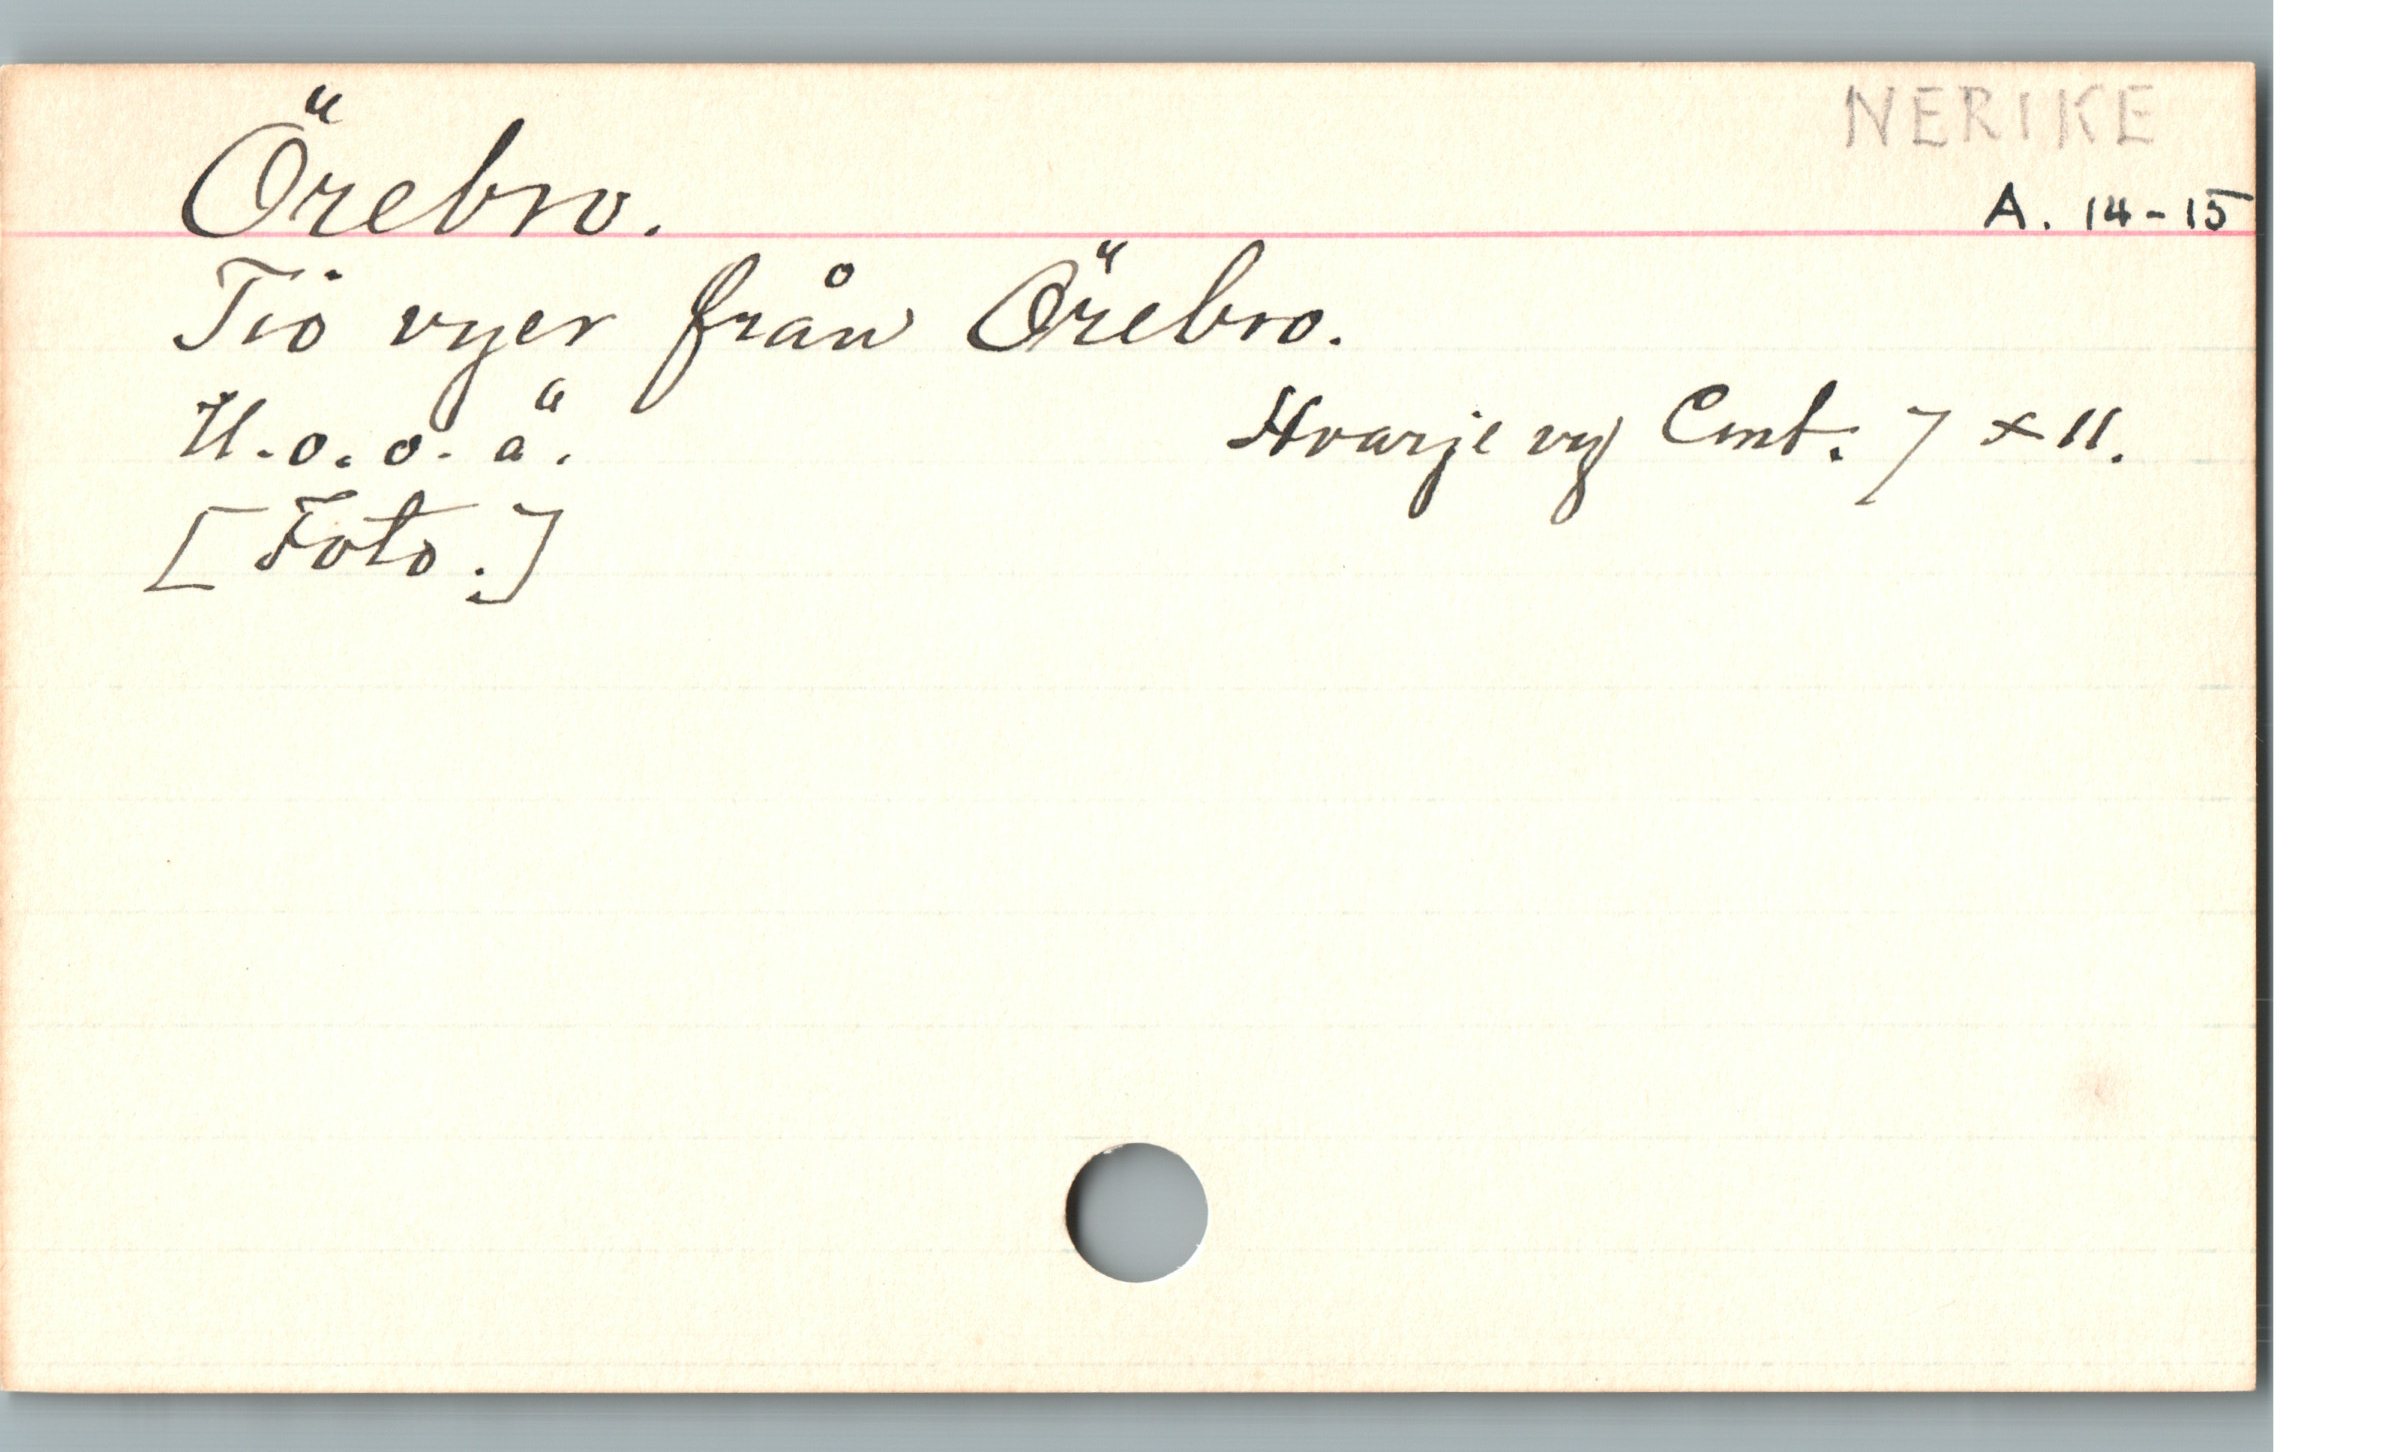 NERIKE
Örebro.
A. 14-15
Tio vyer från Örebro.
U.o.o.ä. Hvarje vy Cmt. 7 x 11.
[Foto.]